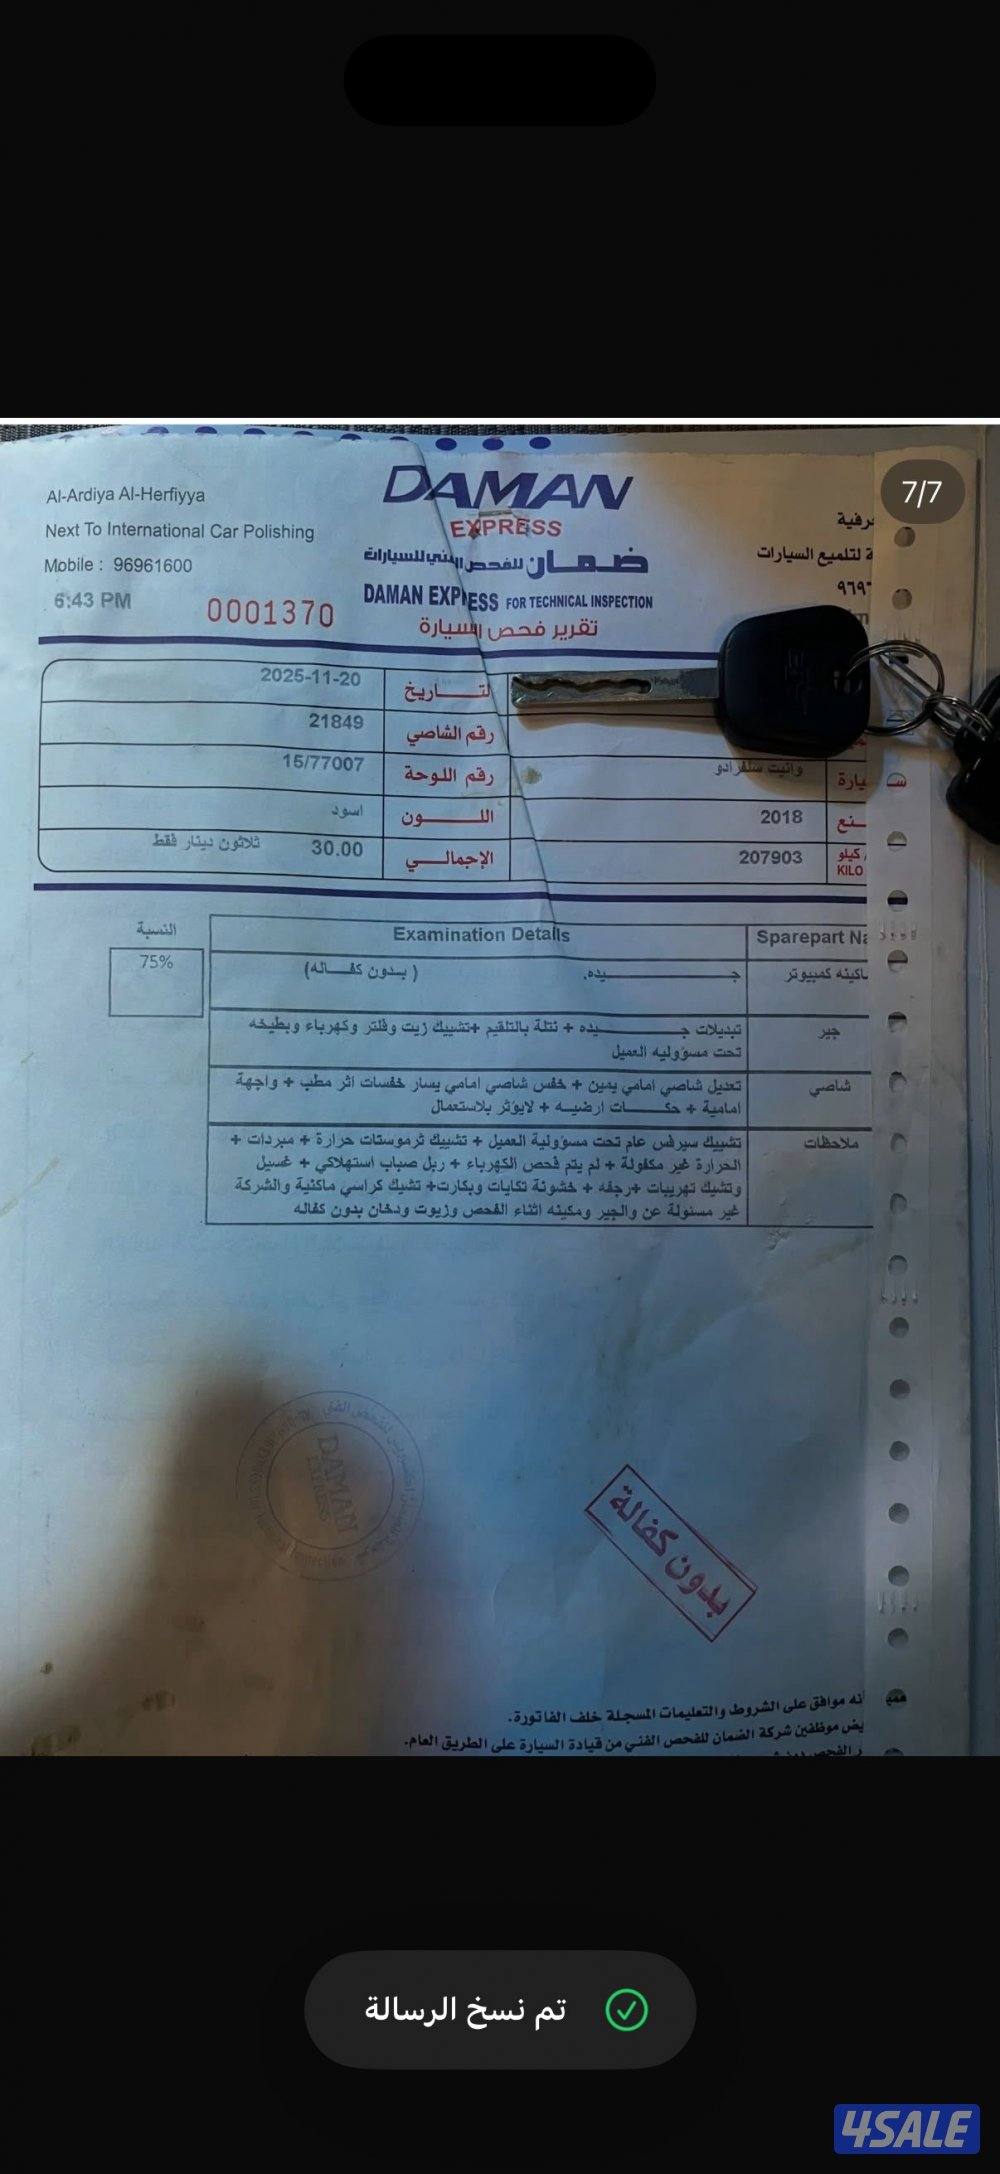 7/7
DAMAN
EXPRESS
ضمان للفحص الفني للسيارات
DAMAN EXPRESS FOR TECHNICAL INSPECTION
تقرير فحص السيارة
Al-Ardiya Al-Herfiyya
Next To International Car Polishing
Mobile : 96961600
6:43 PM
0001370
رفية
ة لتلميع السيارات
٩٦٩٦
التاريخ 2025-11-20
رقم الشاصي 21849
يارة وانيت سلفرادو رقم اللوحة 15/77007
نع 2018 اللون اسود
كيلو KILO 207903 الإجمالي 30.00 ثلاثون دينار فقط
Sparepart Na Examination Details النسبة
ماكينه كمبيوتر جيده. (بدون كفاله) 75%
جير تبديلات جيده + نتلة بالتلقيم +تشييك زيت وفلتر وكهرباء وبطيخه
تحت مسؤوليه العميل
شاصي تعديل شاصي امامي يمين + خفس شاصي امامي يسار خفسات اثر مطب + واجهة
امامية + حكات ارضيه + لايوثر بلاستعمال
ملاحظات تشييك سيرفس عام تحت مسؤولية العميل + تشييك ثرموستات حرارة + مبردات +
الحرارة غير مكفولة + لم يتم فحص الكهرباء + ربل صباب استهلاكي + غسيل
وتشيك تهريبات +رجفه + خشونة تكايات وبكارت+ تشيك كراسي ماكنية والشركة
غير مسئولة عن والجير ومكينه اثناء الفحص وزيوت ودخان بدون كفاله
DAMAN
EXPRESS
بدون كفالة
أنه موافق على الشروط والتعليمات المسجلة خلف الفاتورة.
يض موظفين شركة الضمان للفحص الفني من قيادة السيارة على الطريق العام.
تم نسخ الرسالة
4SALE